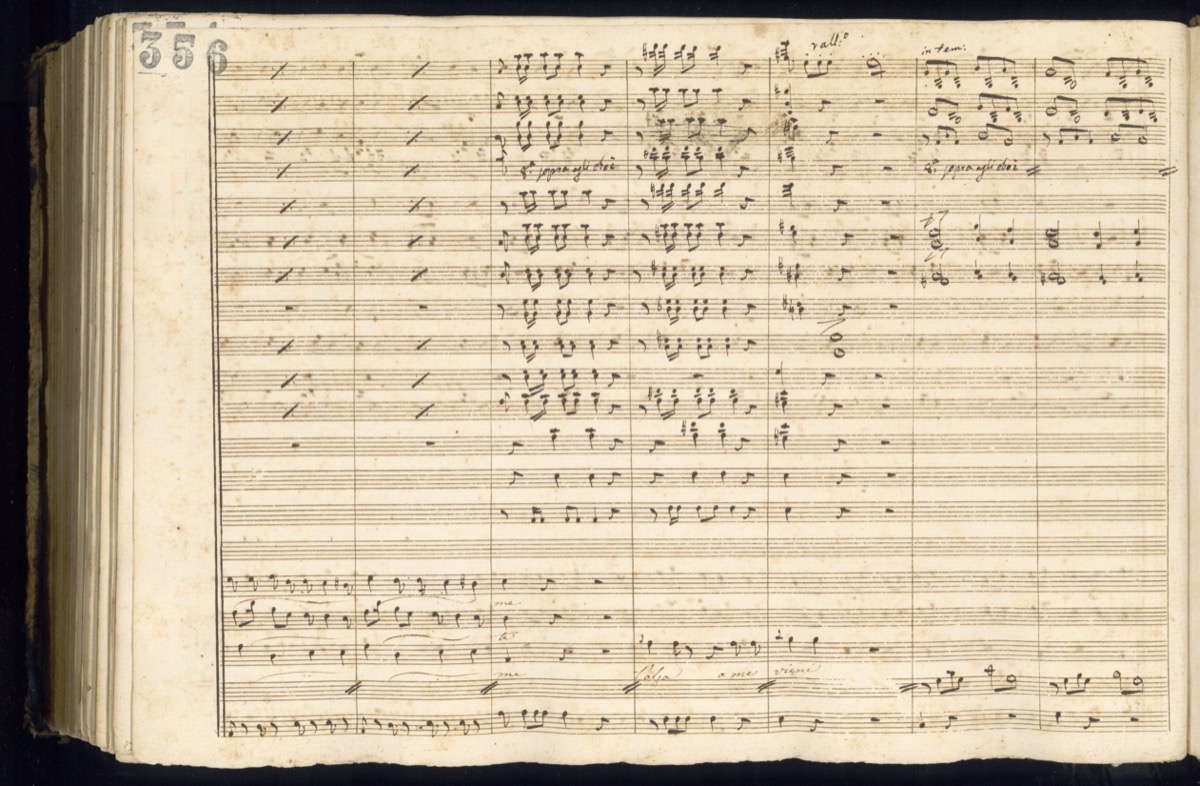 356
rall:º
in tem:
8ª sopra agli oboè 8ª sopra agli oboè
me
te
me Salza a me vieni